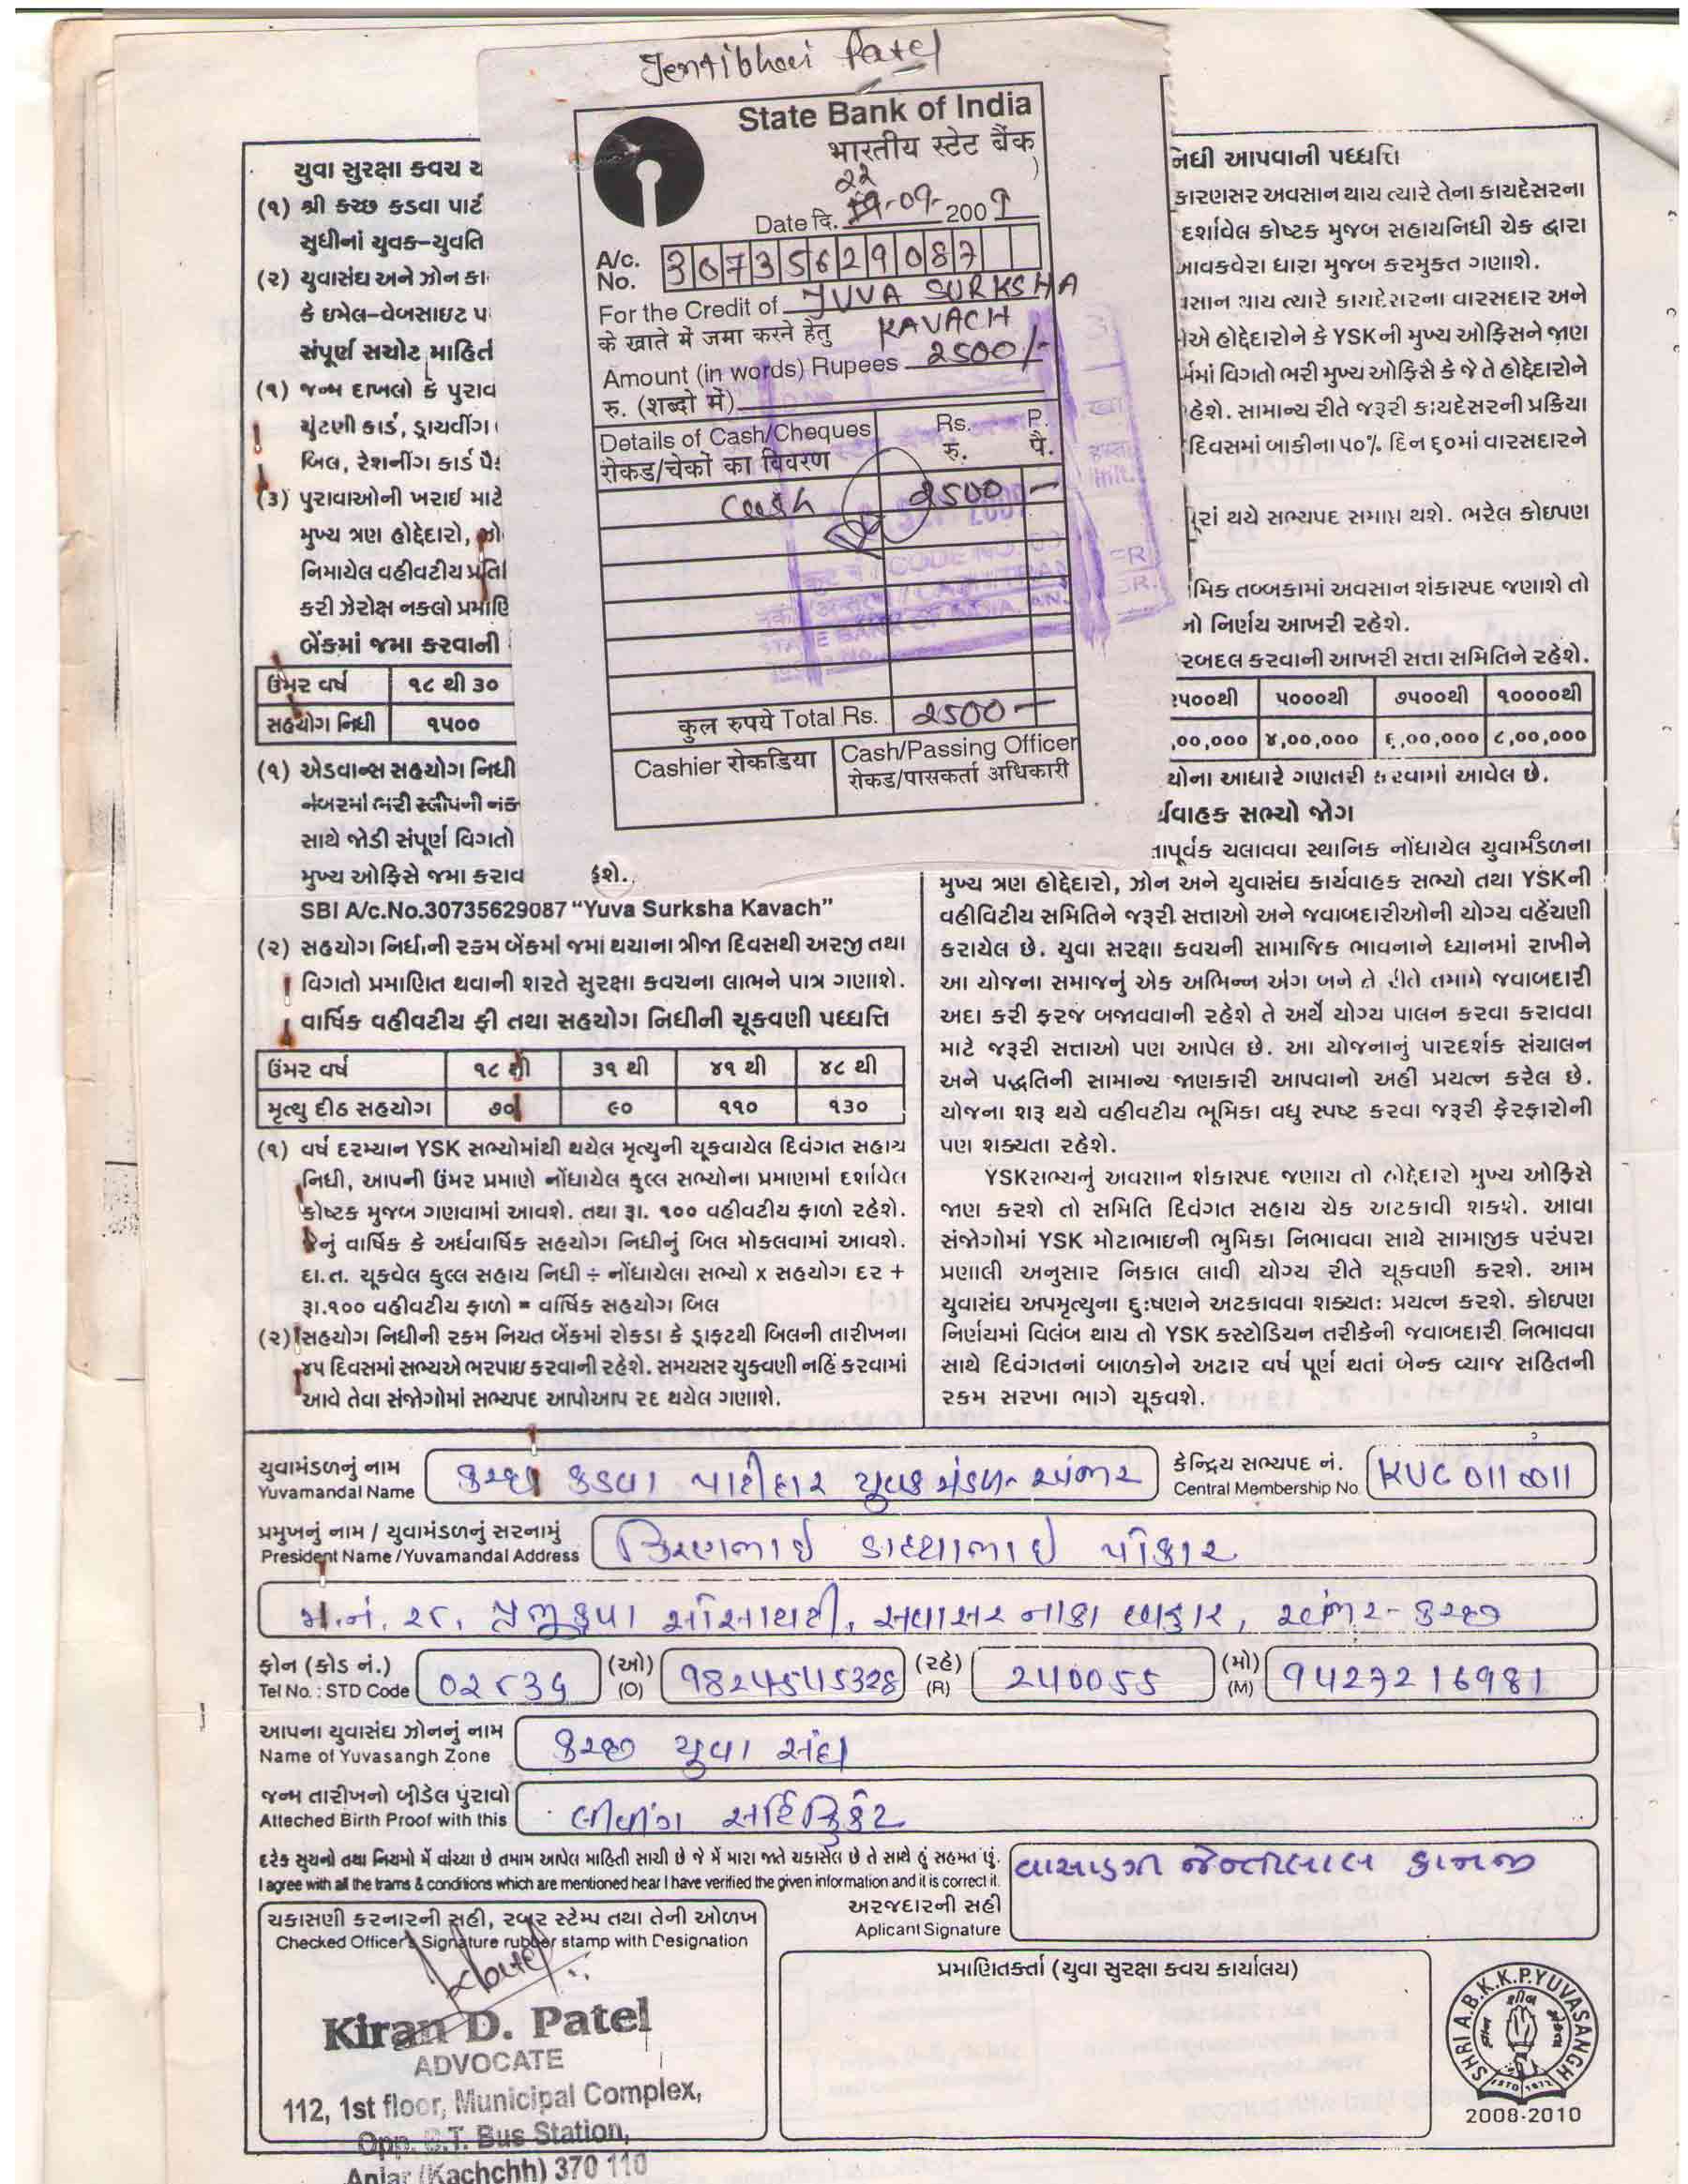 Jentibhai Patel
State Bank of India
भारतीय स्टेट बैंक
22
Date दि. 19-09-2009
A/c. No. 30735629087
For the Credit of YUVA SURKSHA
के खाते में जमा करने हेतु KAVACH
Amount (in words) Rupees 2500/-
रु. (शब्दो में)
Details of Cash/Cheques Rs. P.
रोकड/चेकों का विवरण रु. पै.
Cash 2500 –
कुल रुपये Total Rs. 2500 –
Cashier रोकडिया Cash/Passing Officer
रोकड/पासकर्ता अधिकारी
યુવા સુરક્ષા કવચ
(૧) શ્રી કચ્છ કડવા પાટી
સુધીનાં યુવક-યુવતિ
(૨) યુવાસંઘ અને ઝોન કા
કે ઇમેલ-વેબસાઇટ પ
સંપૂર્ણ સચોટ માહિતિ
(૧) જન્મ દાખલો કે પુરાવ
ચૂંટણી કાર્ડ, ડ્રાયવીંગ
બિલ, રેશનીંગ કાર્ડ પૈ
(૩) પુરાવાઓની ખરાઇ માટે
મુખ્ય ત્રણ હોદ્દેદારો, ઝો
નિમાયેલ વહીવટીય પ્રતિ
કરી ઝેરોક્ષ નકલો પ્રમાણિ
બેંકમાં જમા કરવાની
ઉંમર વર્ષ ૧૮ થી ૩૦
સહયોગ નિધી ૧૫૦૦
(૧) એડવાન્સ સહયોગ નિધી
નંબરમાં ભરી સ્લીપની નક
સાથે જોડી સંપૂર્ણ વિગતો
મુખ્ય ઓફિસે જમા કરાવ શે.
SBI A/c.No.30735629087 “Yuva Surksha Kavach”
(૨) સહયોગ નિધીની રકમ બેંકમાં જમાં થયાના ત્રીજા દિવસથી અરજી તથા
વિગતો પ્રમાણિત થવાની શરતે સુરક્ષા કવચના લાભને પાત્ર ગણાશે.
વાર્ષિક વહીવટીય ફી તથા સહયોગ નિધીની ચૂકવણી પધ્ધત્તિ
ઉંમર વર્ષ ૧૮ થી ૩૧ થી ૪૧ થી ૪૮ થી
મૃત્યુ દીઠ સહયોગ ૭૦ ૯૦ ૧૧૦ ૧૩૦
(૧) વર્ષ દરમ્યાન YSK સભ્યોમાંથી થયેલ મૃત્યુની ચૂકવાયેલ દિવંગત સહાય
નિધી, આપની ઉંમર પ્રમાણે નોંધાયેલ કુલ્લ સભ્યોના પ્રમાણમાં દર્શાવેલ
કોષ્ટક મુજબ ગણવામાં આવશે. તથા રૂા. ૧૦૦ વહીવટીય ફાળો રહેશે.
જેનું વાર્ષિક કે અર્ધવાર્ષિક સહયોગ નિધીનું બિલ મોકલવામાં આવશે.
દા.ત. ચૂકવેલ કુલ્લ સહાય નિધી ÷ નોંધાયેલા સભ્યો x સહયોગ દર +
રૂા.૧૦૦ વહીવટીય ફાળો = વાર્ષિક સહયોગ બિલ
(૨) સહયોગ નિધીની રકમ નિયત બેંકમાં રોકડા કે ડ્રાફટથી બિલની તારીખના
૪૫ દિવસમાં સભ્યએ ભરપાઇ કરવાની રહેશે. સમયસર ચુકવણી નહિં કરવામાં
આવે તેવા સંજોગોમાં સભ્યપદ આપોઆપ રદ થયેલ ગણાશે.
નિધી આપવાની પધ્ધત્તિ
કારણસર અવસાન થાય ત્યારે તેના કાયદેસરના
દર્શાવેલ કોષ્ટક મુજબ સહાયનિધી ચેક દ્વારા
આવકવેરા ધારા મુજબ કરમુકત ગણાશે.
સાન થાય ત્યારે કાયદેસરના વારસદાર અને
એ હોદ્દેદારોને કે YSKની મુખ્ય ઓફિસને જાણ
ર્મમાં વિગતો ભરી મુખ્ય ઓફિસે કે જે તે હોદ્દેદારોને
હેશે. સામાન્ય રીતે જરૂરી કાયદેસરની પ્રકિયા
દિવસમાં બાકીના ૫૦% દિન ૬૦માં વારસદારને
પૂરાં થયે સભ્યપદ સમાપ્ત થશે. ભરેલ કોઇપણ
મિક તબ્બકામાં અવસાન શંકાસ્પદ જણાશે તો
નો નિર્ણય આખરી રહેશે.
રબદલ કરવાની આખરી સત્તા સમિતિને રહેશે.
૨૫૦૦થી ૫૦૦૦થી ૭૫૦૦થી ૧૦૦૦૦થી
,૦૦,૦૦૦ ૪,૦૦,૦૦૦ ૬,૦૦,૦૦૦ ૮,૦૦,૦૦૦
યોના આધારે ગણતરી કરવામાં આવેલ છે.
ર્યવાહક સભ્યો જોગ
તાપૂર્વક ચલાવવા સ્થાનિક નોંધાયેલ યુવામંડળના
મુખ્ય ત્રણ હોદ્દેદારો, ઝોન અને યુવાસંઘ કાર્યવાહક સભ્યો તથા YSKની
વહીવિટીય સમિતિને જરૂરી સત્તાઓ અને જવાબદારીઓની યોગ્ય વહેંચણી
કરાયેલ છે. યુવા સરક્ષા કવચની સામાજિક ભાવનાને ધ્યાનમાં રાખીને
આ યોજના સમાજનું એક અભિન્ન અંગ બને તે રીતે તમામે જવાબદારી
અદા કરી ફરજ બજાવવાની રહેશે તે અર્થે યોગ્ય પાલન કરવા કરાવવા
માટે જરૂરી સત્તાઓ પણ આપેલ છે. આ યોજનાનું પારદર્શક સંચાલન
અને પદ્ધતિની સામાન્ય જાણકારી આપવાનો અહીં પ્રયત્ન કરેલ છે.
યોજના શરૂ થયે વહીવટીય ભૂમિકા વધુ સ્પષ્ટ કરવા જરૂરી ફેરફારોની
પણ શક્યતા રહેશે.
YSKસભ્યનું અવસાન શંકાસ્પદ જણાય તો હોદ્દેદારો મુખ્ય ઓફિસે
જાણ કરશે તો સમિતિ દિવંગત સહાય ચેક અટકાવી શકશે. આવા
સંજોગોમાં YSK મોટાભાઇની ભુમિકા નિભાવવા સાથે સામાજીક પરંપરા
પ્રણાલી અનુસાર નિકાલ લાવી યોગ્ય રીતે ચૂકવણી કરશે. આમ
યુવાસંઘ અપમૃત્યુના દુઃષણને અટકાવવા શક્યતઃ પ્રયત્ન કરશે. કોઇપણ
નિર્ણયમાં વિલંબ થાય તો YSK કસ્ટોડિયન તરીકેની જવાબદારી નિભાવવા
સાથે દિવંગતનાં બાળકોને અઢાર વર્ષ પૂર્ણ થતાં બેન્ક વ્યાજ સહિતની
રકમ સરખા ભાગે ચૂકવશે.
યુવામંડળનું નામ કચ્છ કડવા પાટીદાર યુવક મંડળ - અંજાર કેન્દ્રિય સભ્યપદ નં.
Yuvamandal Name Central Membership No. KUC 011 0011
પ્રમુખનું નામ / યુવામંડળનું સરનામું કિરણભાઇ ડાહ્યાભાઇ પોકાર
President Name / Yuvamandal Address
મ.નં. ૨૮, પ્રભુકૃપા સોસાયટી, સવાસર નાકા બહાર, અંજાર - કચ્છ
ફોન (કોડ નં.) (ઓ) (રહે) (મો)
Tel No. : STD Code 02836 (O) 9824545328 (R) 240055 (M) 9427216981
આપના યુવાસંઘ ઝોનનું નામ કચ્છ યુવા સંઘ
Name of Yuvasangh Zone
જન્મ તારીખનો બીડેલ પુરાવો લીવીંગ સર્ટિફિકેટ
Atteched Birth Proof with this
દરેક સુચનો તથા નિયમો મેં વાંચ્યા છે તમામ આપેલ માહિતી સાચી છે જે મેં મારા જાતે ચકાસેલ છે તે સાથે હું સહમત છું.
I agree with all the trams & conditions which are mentioned hear I have verified the given information and it is correct it.
વાસાણી જેન્તીલાલ કાનજી
અરજદારની સહી
Aplicant Signature
ચકાસણી કરનારની સહી, રબર સ્ટેમ્પ તથા તેની ઓળખ
Checked Officer's Signature rubber stamp with Designation
Kiran D. Patel
ADVOCATE
112, 1st floor, Municipal Complex,
Opp. S.T. Bus Station,
Anjar (Kachchh) 370 110
પ્રમાણિતકર્તા (યુવા સુરક્ષા કવચ કાર્યાલય)
SHRI A.B.K.K.P. YUVASANGH
2008-2010